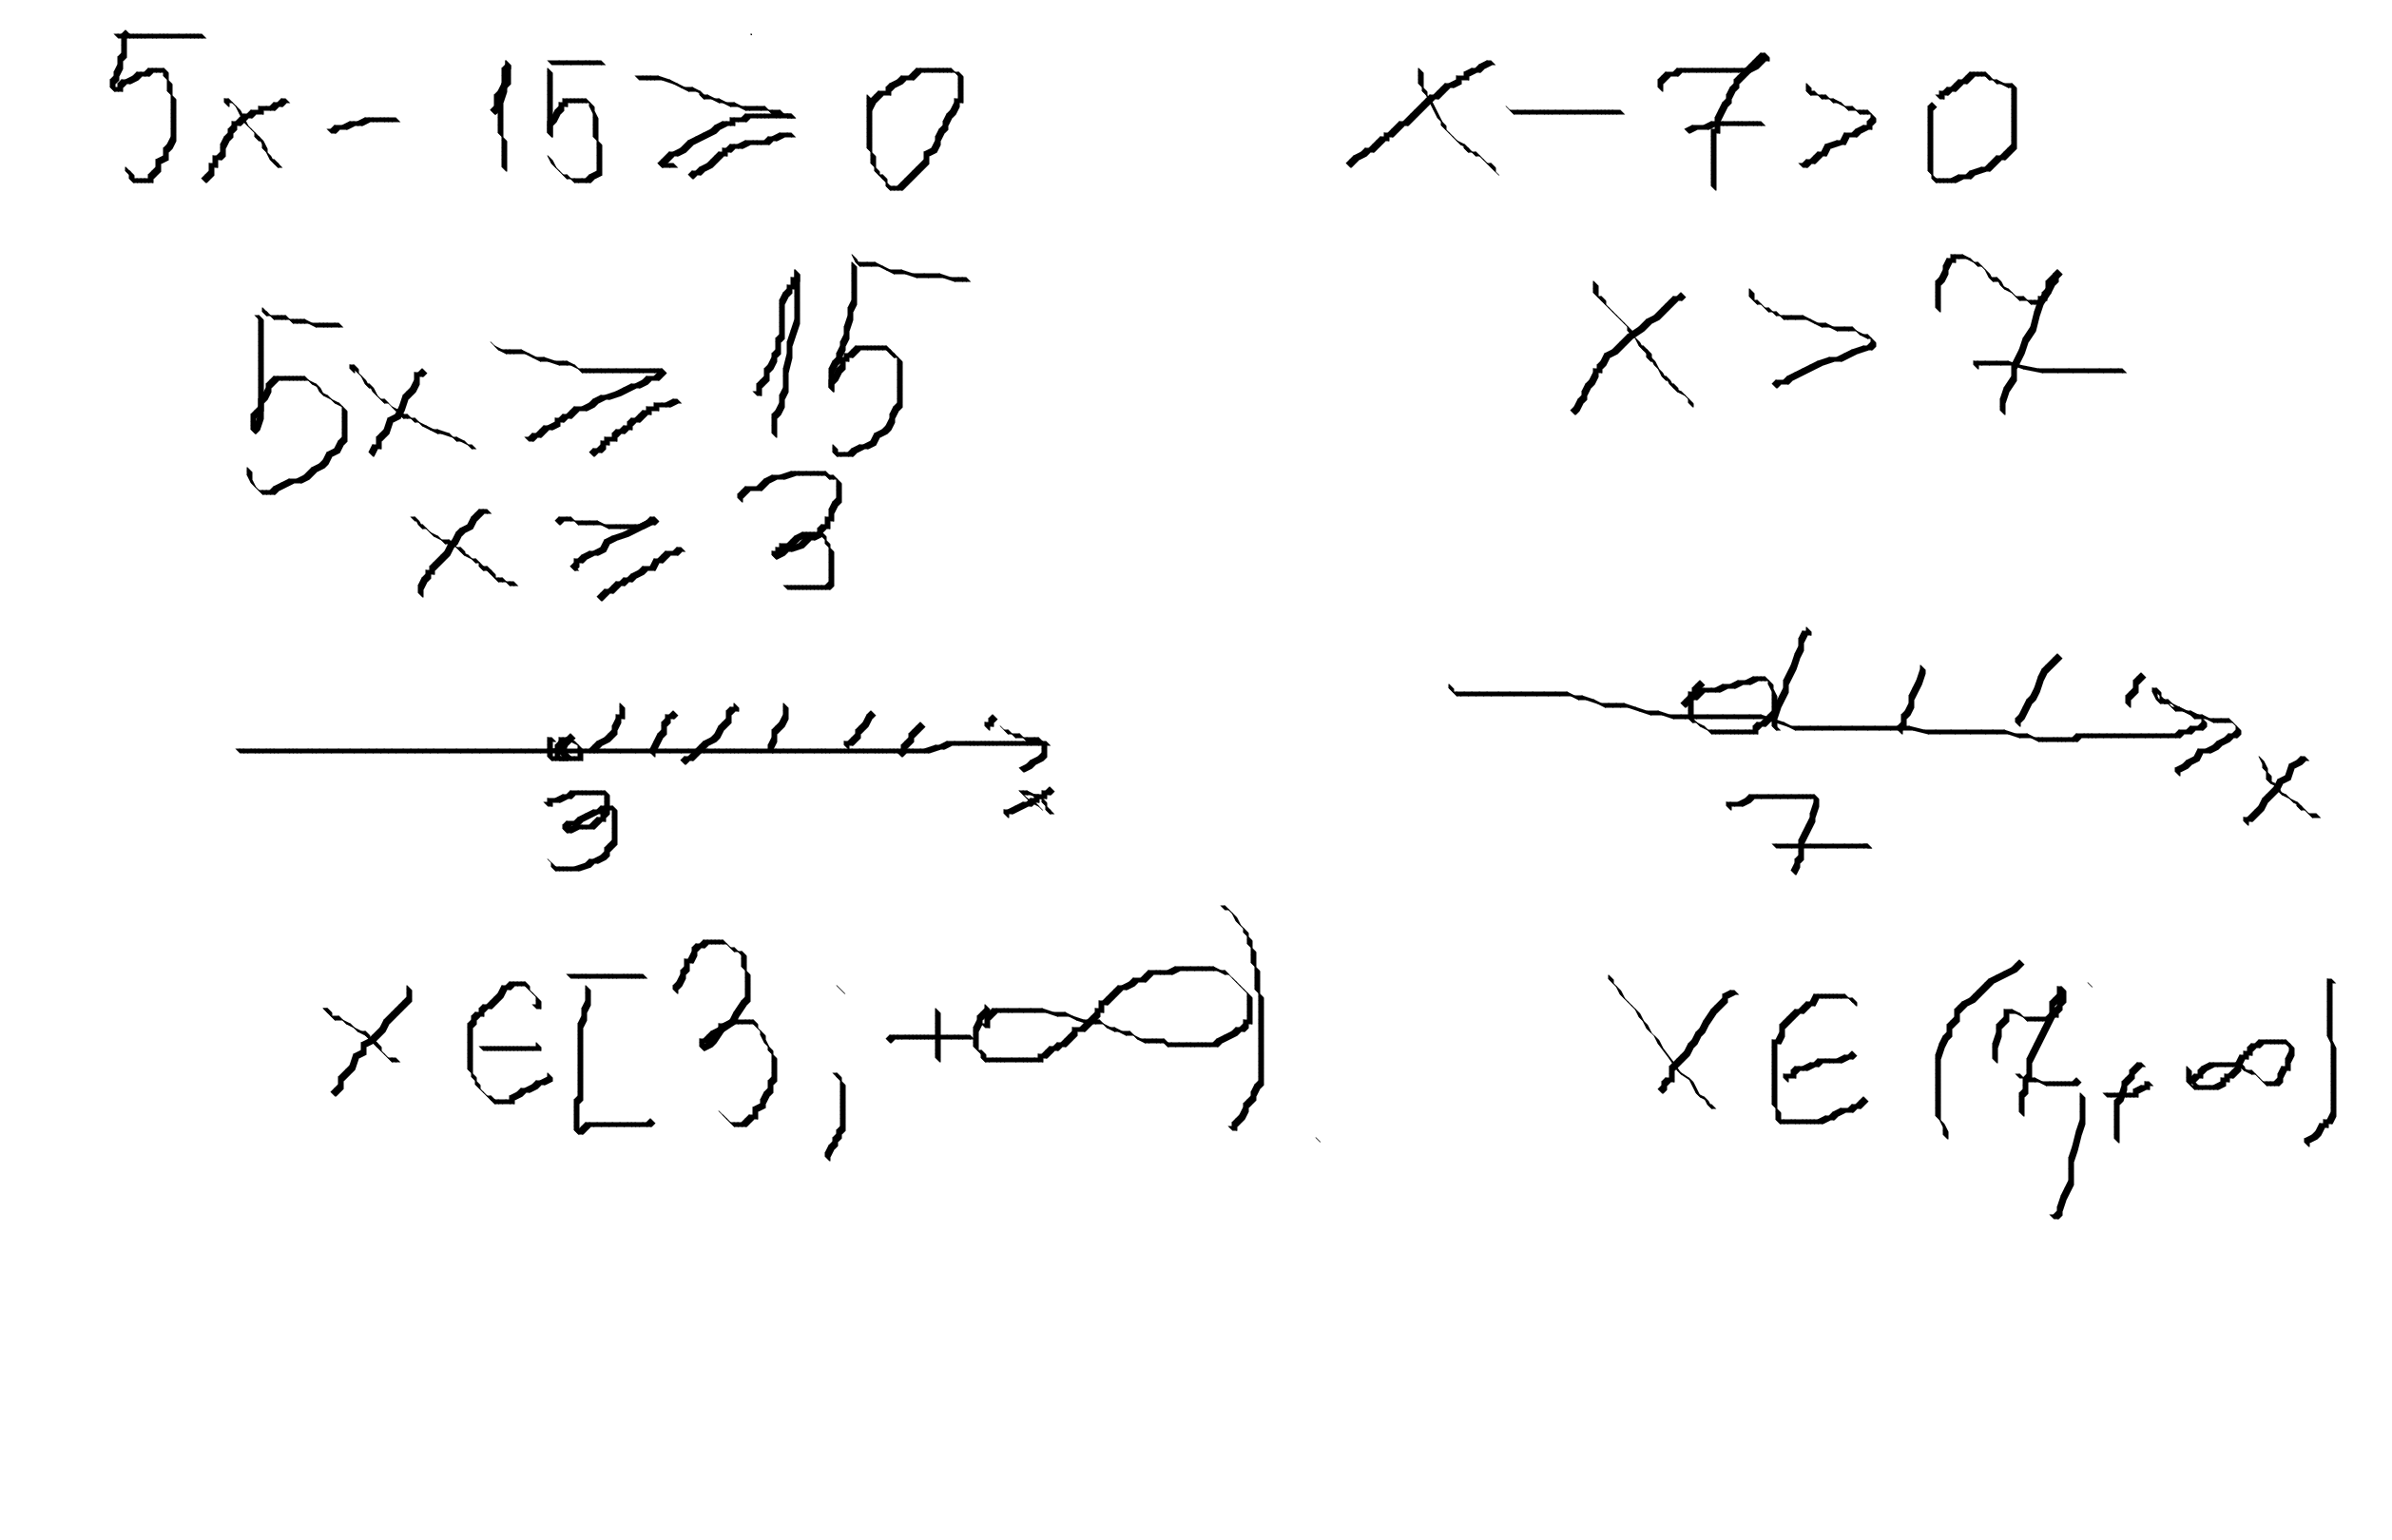 5x - 15 ⩾ 0
5x ⩾ 15
x ⩾ 3
3
x
x ∈ [3; +∞)
x - 7 > 0
x > 7
7
x
x ∈ (7; +∞)